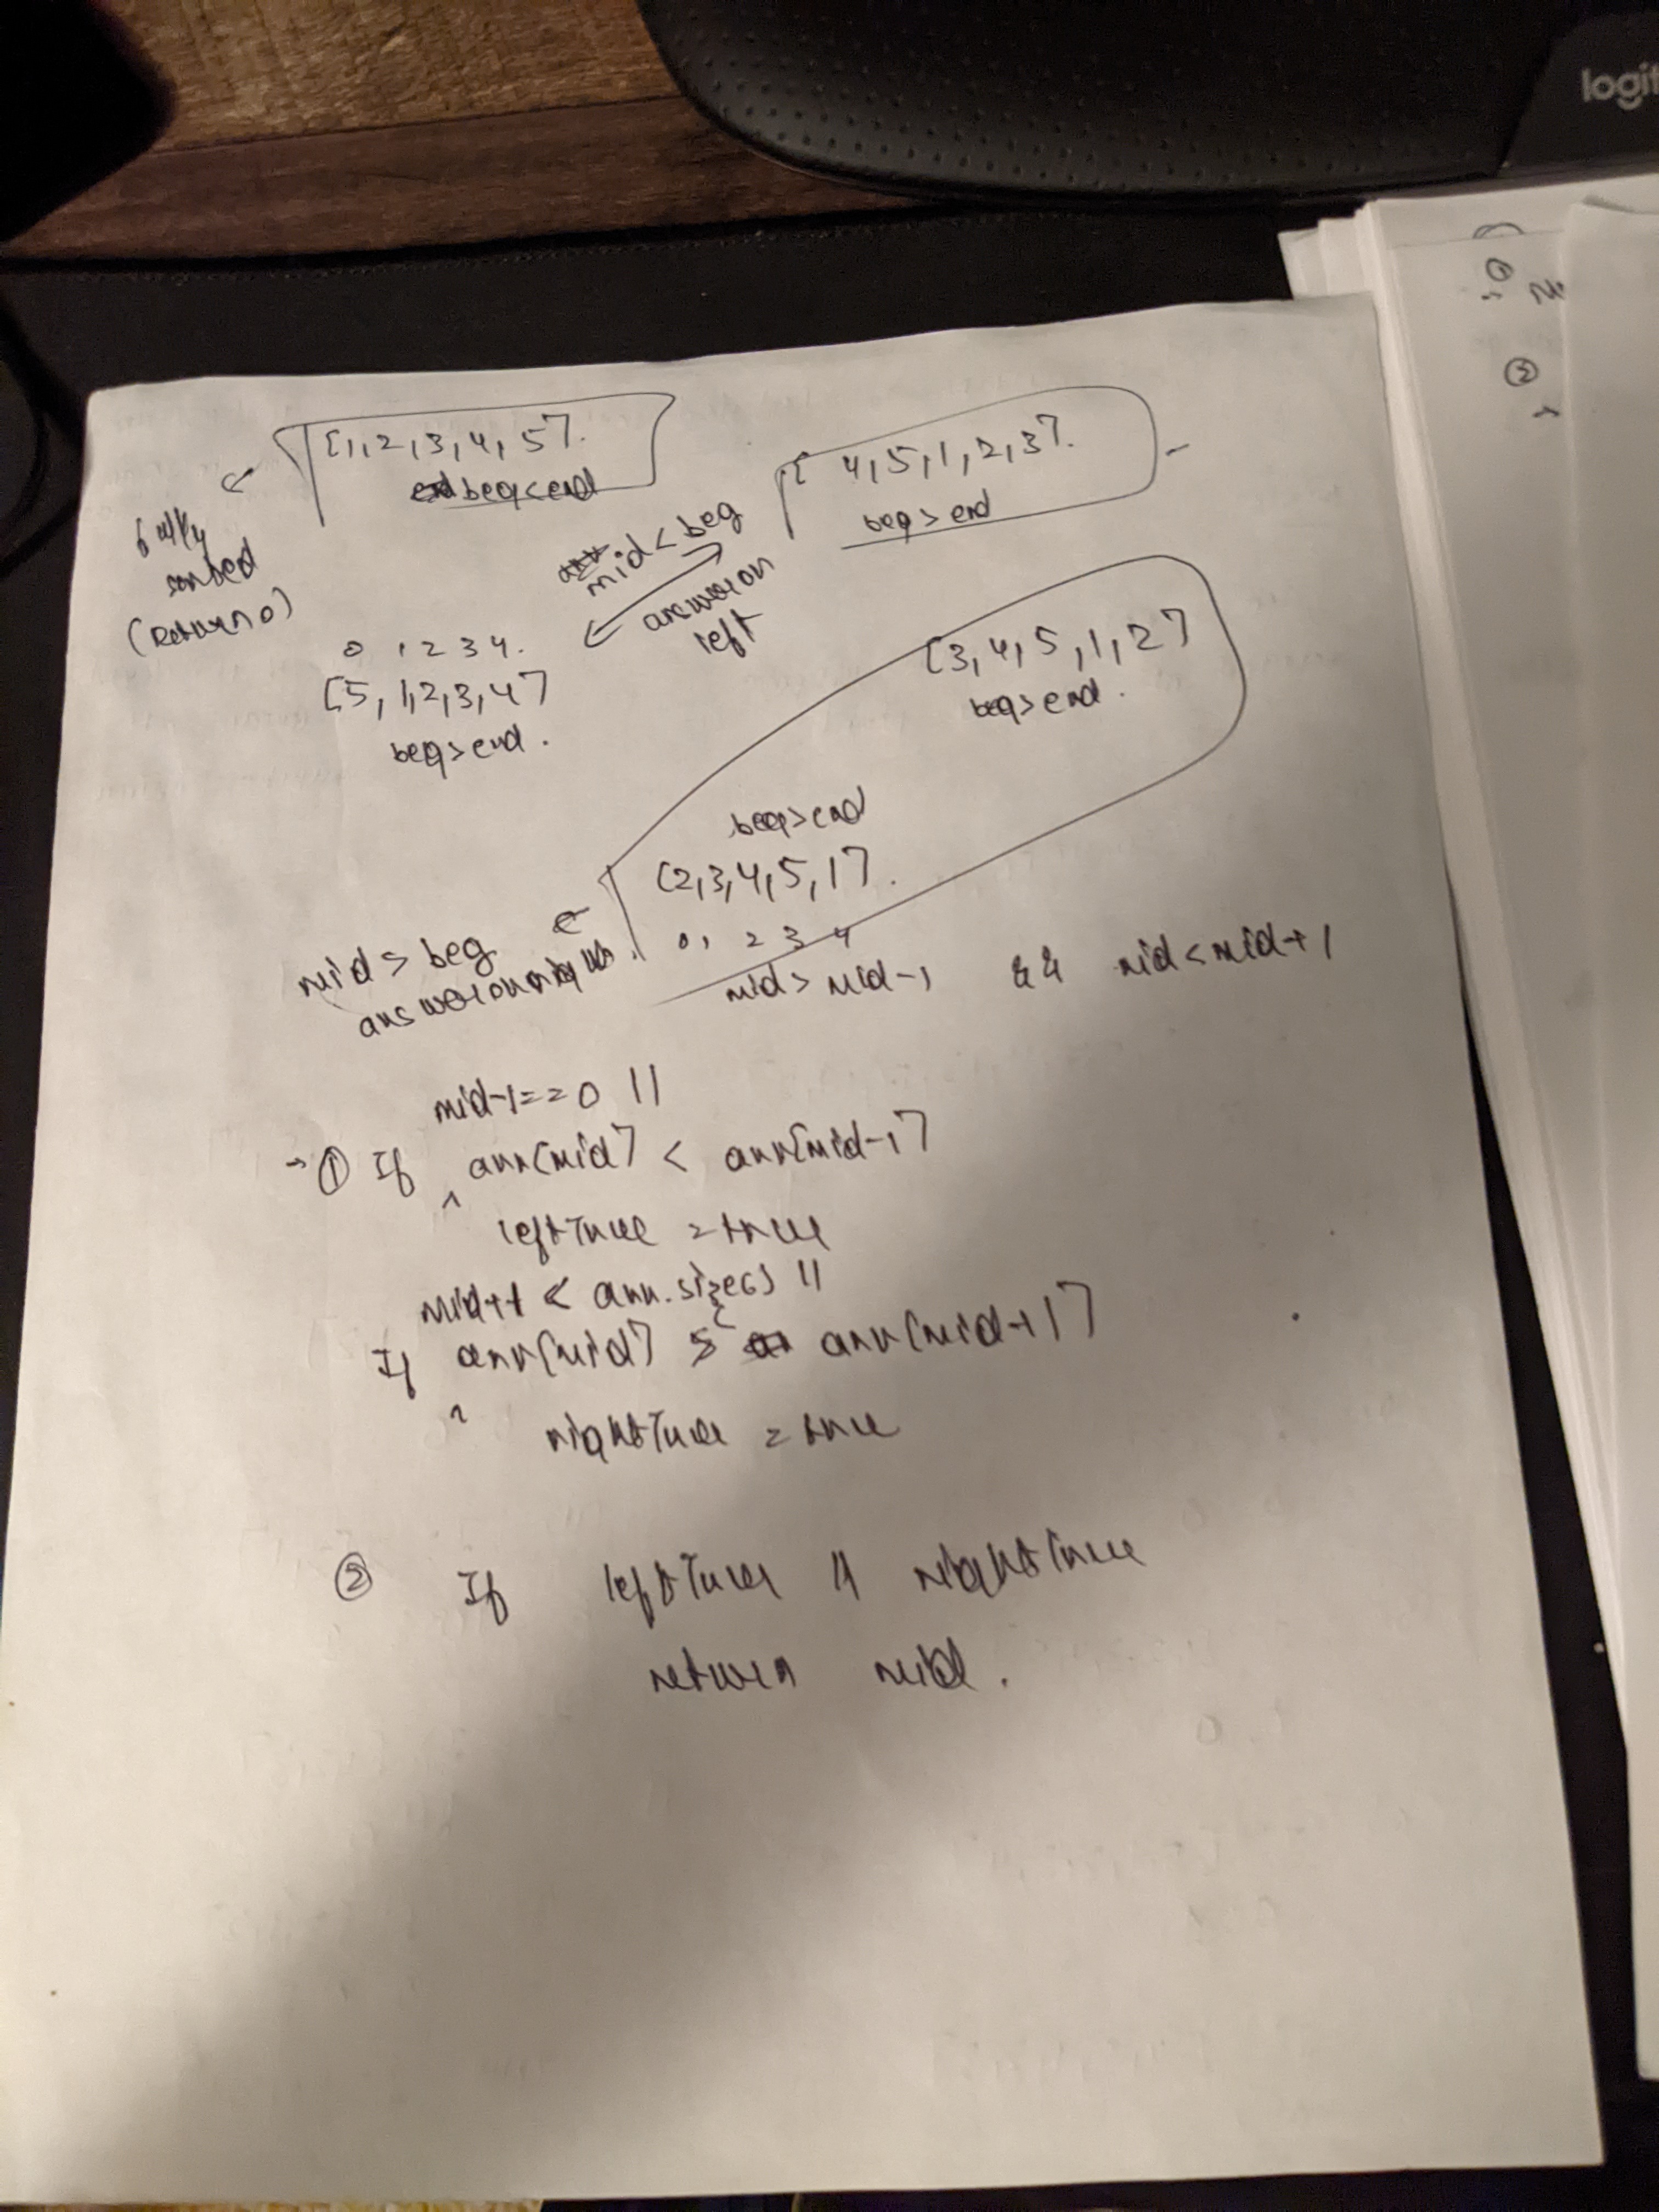 logit
[1,2,3,4,5].
beg<end
[4,5,1,2,3].
beg > end
fully
sorted
(Return 0)
mid < beg
answer on
left
0 1 2 3 4.
[5,1,2,3,4]
beg > end.
[3,4,5,1,2]
beg > end.
beg > end
[2,3,4,5,1].
0 1 2 3 4
mid > beg
answer on right
mid > mid-1 && mid < mid+1
mid-1==0 ||
→ ① If arr[mid] < arr[mid-1]
left True = true
mid+1 < arr.size() ||
If arr[mid] < arr[mid+1]
right True = true
② If left True || right True
return mid.
①
②